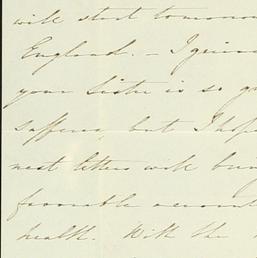 will start tomorrow
England. – I grieve
your Sister is so gr
suffering, but I hope
next letters will bring
favorable account
health. With the